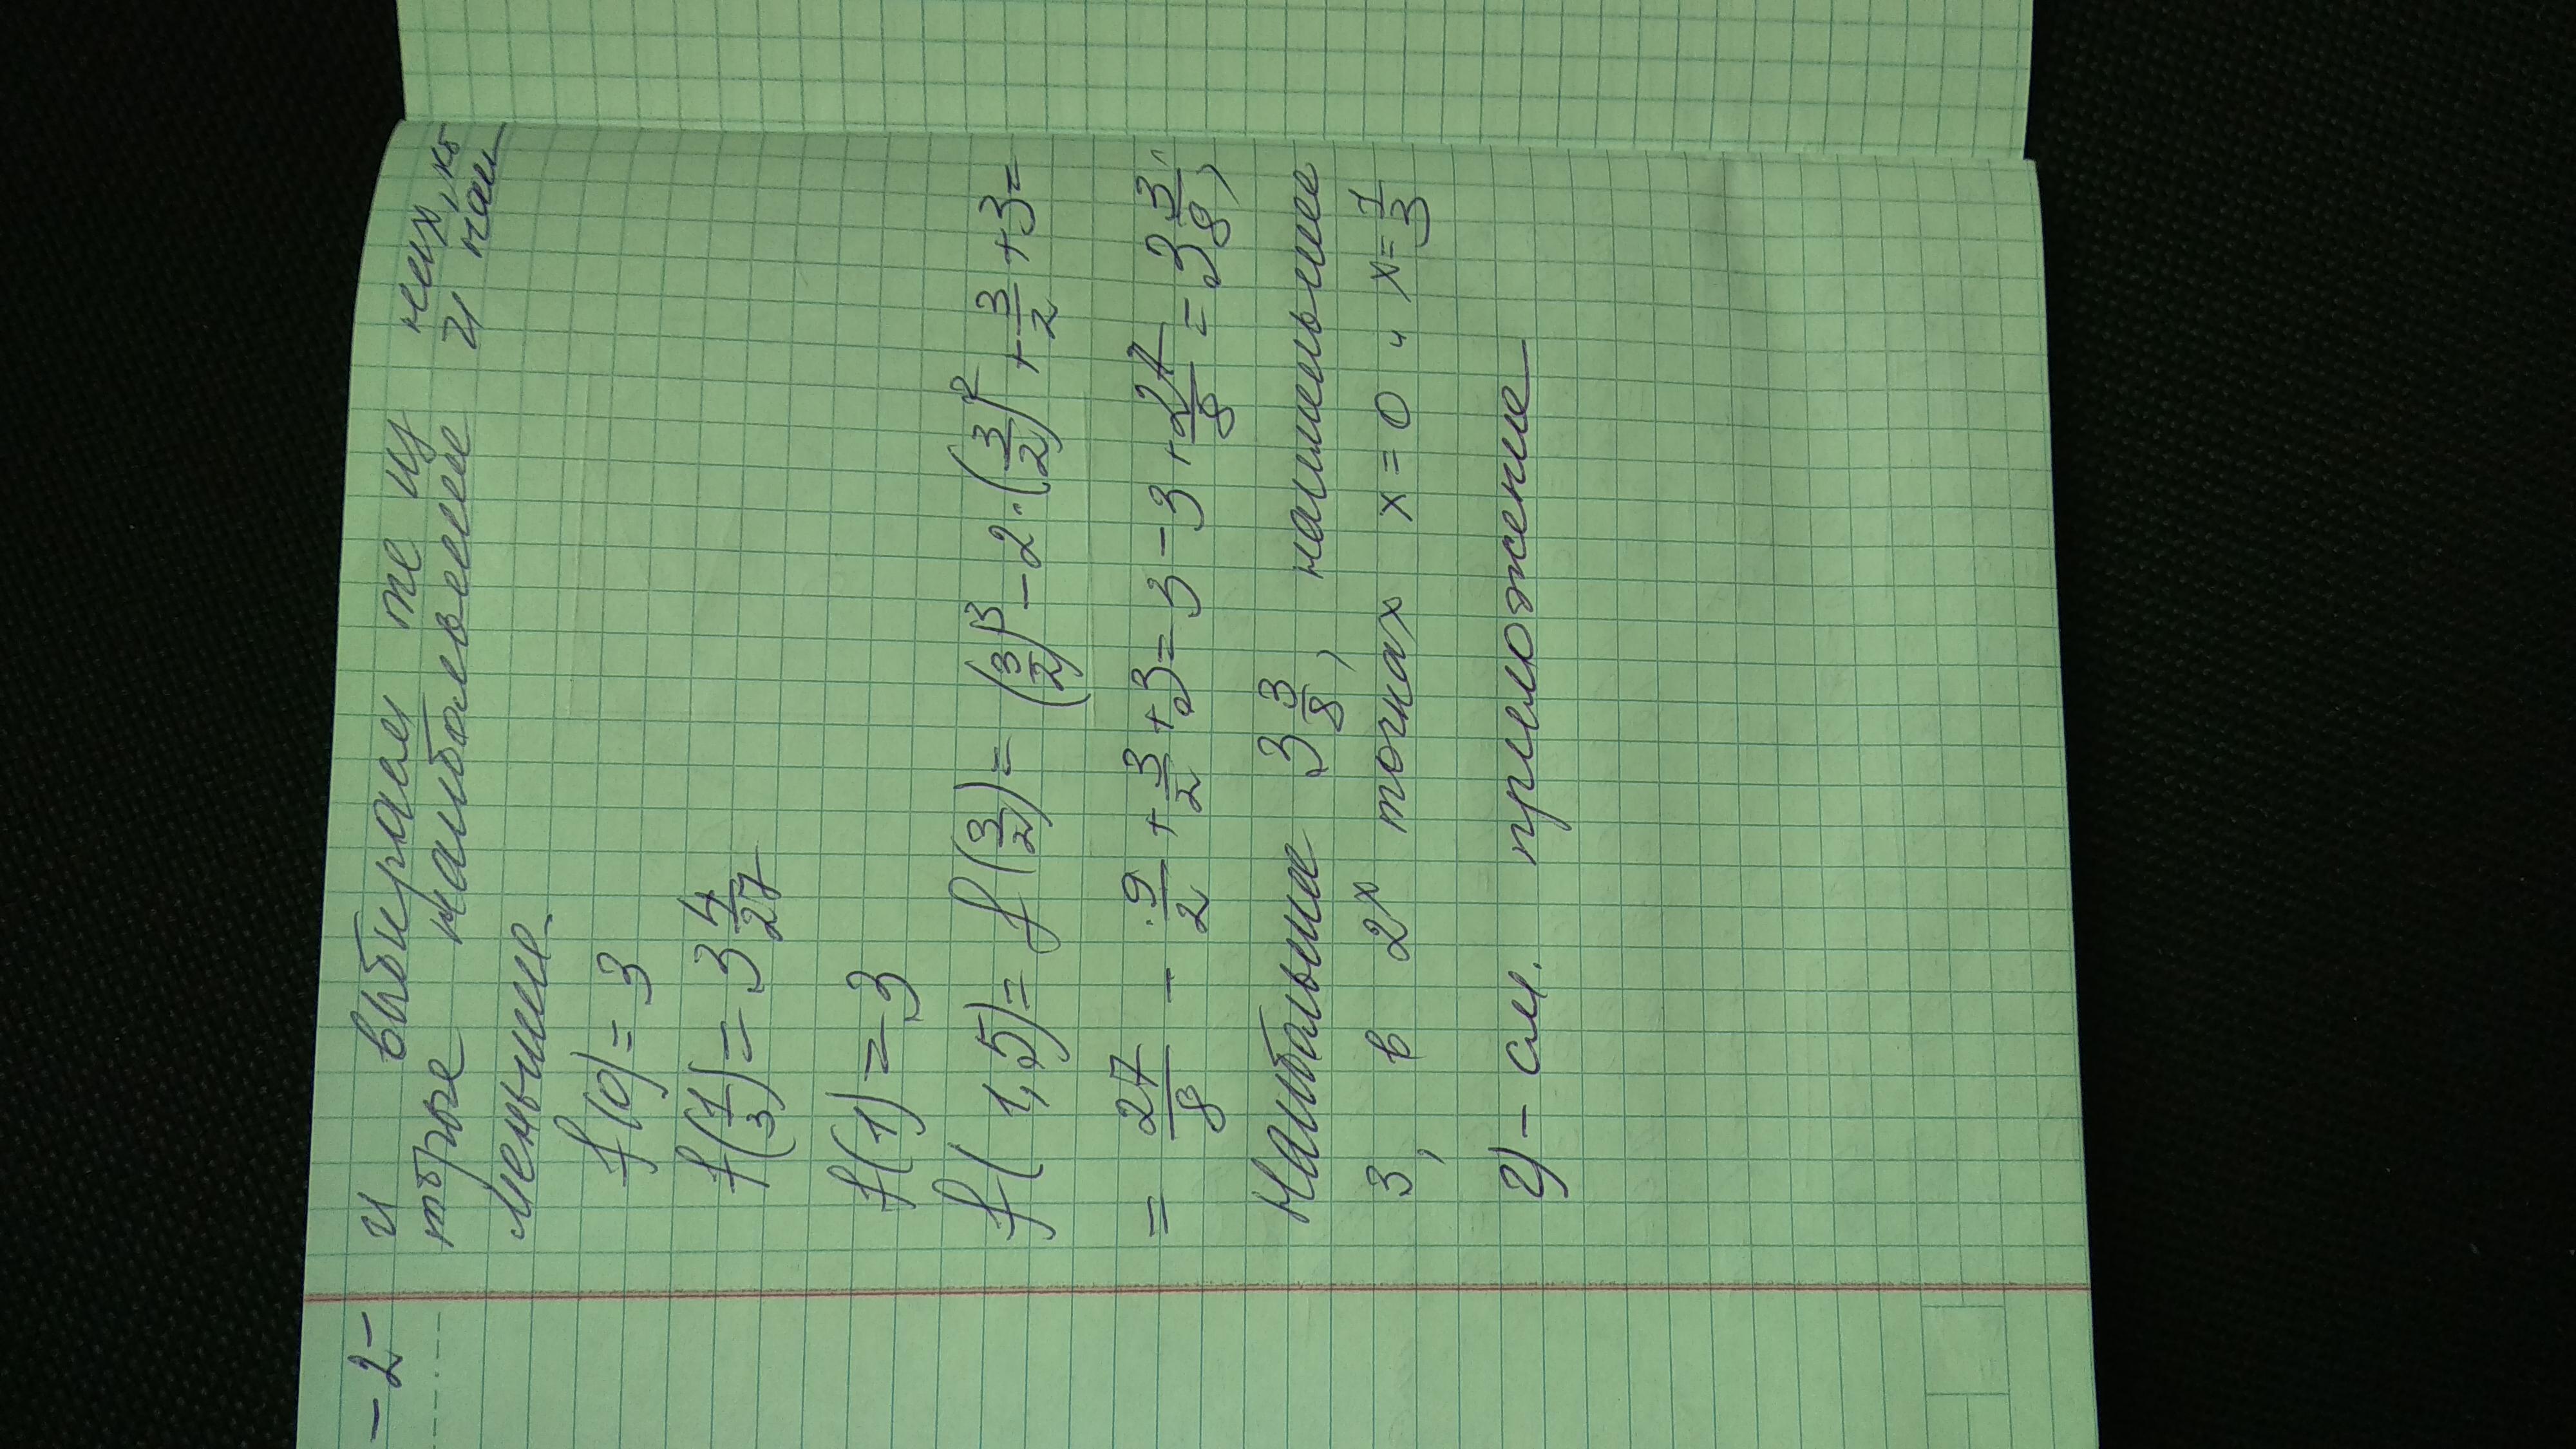 -2-
и выбираем те из них, ко
торые наибольшее и наи
меньшее.
f(0) = 3
f(1/3) = 3 4/27
f(1) = 3
f(1,5) = f(3/2) = (3/2)³ - 2·(3/2)² + 3/2 + 3 =
= 27/8 - 9/2 + 3/2 + 3 = 3 - 3 + 27/8 = 3 3/8,
Наибольшие 3 3/8, наименьшее
3, в 2х точках x = 0 и x = 1/3
2) - см. приложение